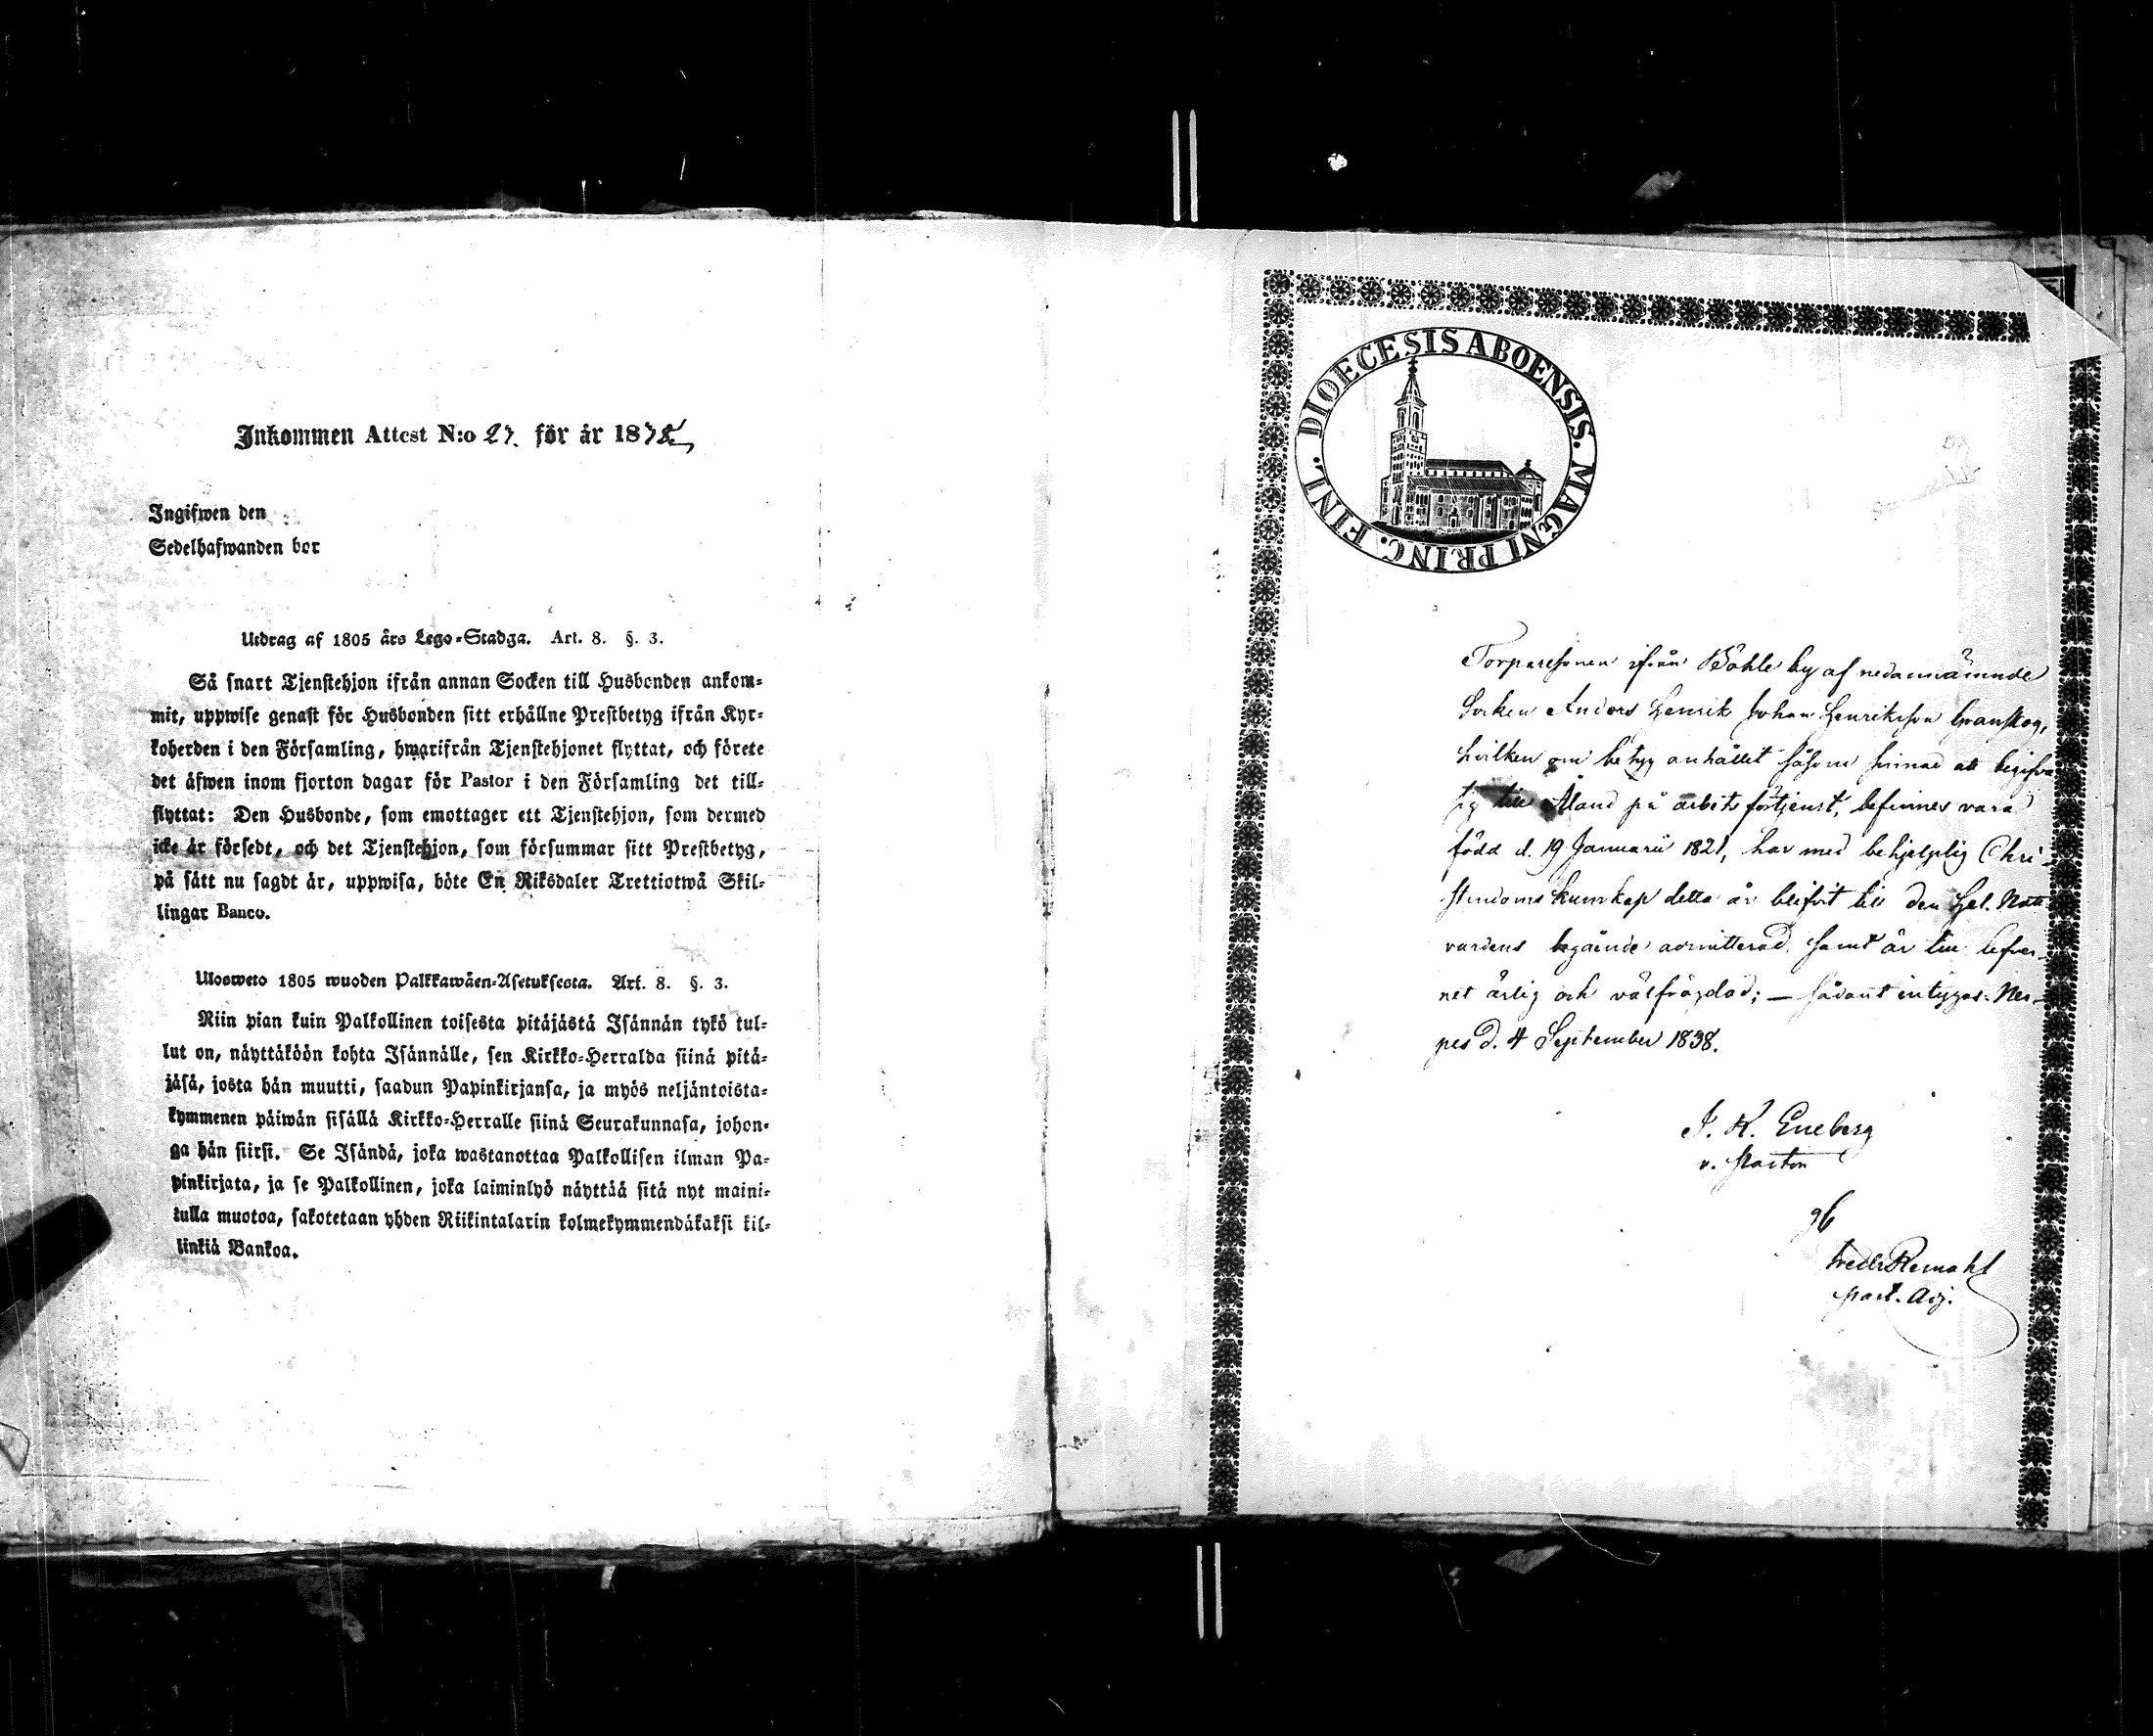 Inkommen Attest N:o 27. för år 18
Ingifwen den
Sedelhafwanden bor
Utdrag af 1805 års Lego-Stadga. Art. 8. §. 3.
Så snart Tjenstehjon ifrån annan Socken till Husbonden ankom-
mit, uppwise genast för Husbonden sitt erhållne Prestbetyg ifrån Kyr-
koherden i den Församling, hwarifrån Tjenstehjonet flyttat, och förete
det äfwen inom fjorton dagar för Pastor i den Församling det till-
flyttat: Den Husbonde, som emottager ett Tjenstehjon, som dermed
icke är försedt, och det Tjenstehjon, som försummar sitt Prestbetyg,
på sätt nu sagdt är, uppwisa, böte En Riksdaler Trettiotwå Skil-
lingar Banco.
Ulosweto 1805 wuoden Palkkawäen-Asetuksesta. Art. 8. §. 3.
Niin pian kuin Palkollinen toisesta pitäjästä Isännän tykö tul-
lut on, näyttäköön kohta Isännälle, sen Kirkko-Herralda siinä pitä-
jäsä, josta hän muutti, saadun Papinkirjansa, ja myös neljäntoista-
kymmenen päiwän sisällä Kirkko-Herralle siinä Seurakunnasa, johon-
ga hän siirsi. Se Isändä, joka wastanottaa Palkollisen ilman Pa-
pinkirjata, ja se Palkollinen, joka laiminlyö näyttää sitä nyt maini-
tulla muotoa, sakotetaan yhden Riikintalarin kolmekymmendäkaksi kil-
linkiä Bankoa.
DIOECESIS ABOENSIS. MAGNI PRINC. FINL.
Torparesonen ifrån Böhle by af nedannämnde
Socken Anders Henrik Johan Henriksson Granskog,
hvilken om betyg anhållit såsom sinnad att begifva
sig till Åland på arbetsförtjenst, befinnes vara
född d. 19 Januarii 1821, har med behjelplig Chri-
stendoms kunskap detta år blifvit till den Hel. Natt-
vardens begående admitterad samt är till lefver-
net ärlig och välfrägdad; — sådant intygas. Ner-
pes d. 4 September 1838.
J. K. Eneberg
v. Pastor
Past. Adj.